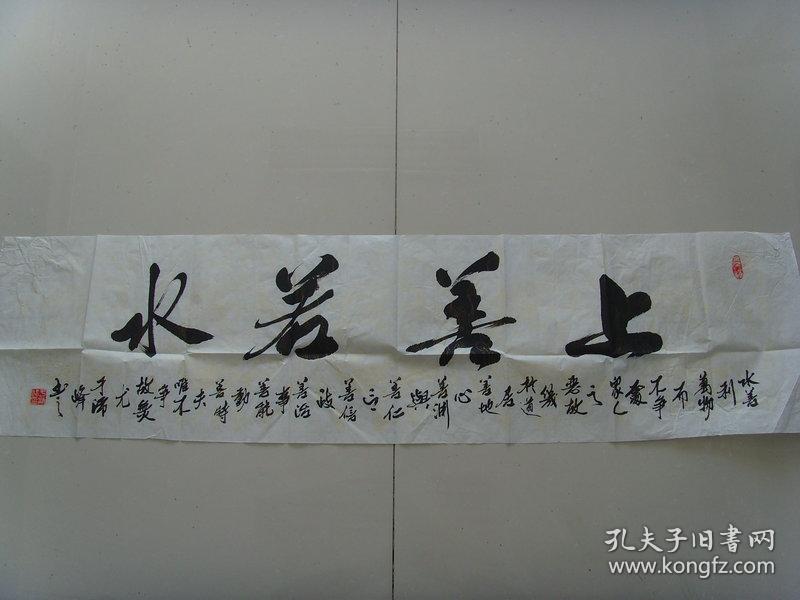 上善若水
水善
利
萬物
而
不争
處
衆人
之
惡故
幾
於道
居
善地
心
善渊
與
善仁
言
善信
政
善治
事
善能
動
善時
夫
唯不
争
故無
尤
于沛
峰
书之
孔夫子旧书网
www.kongfz.com